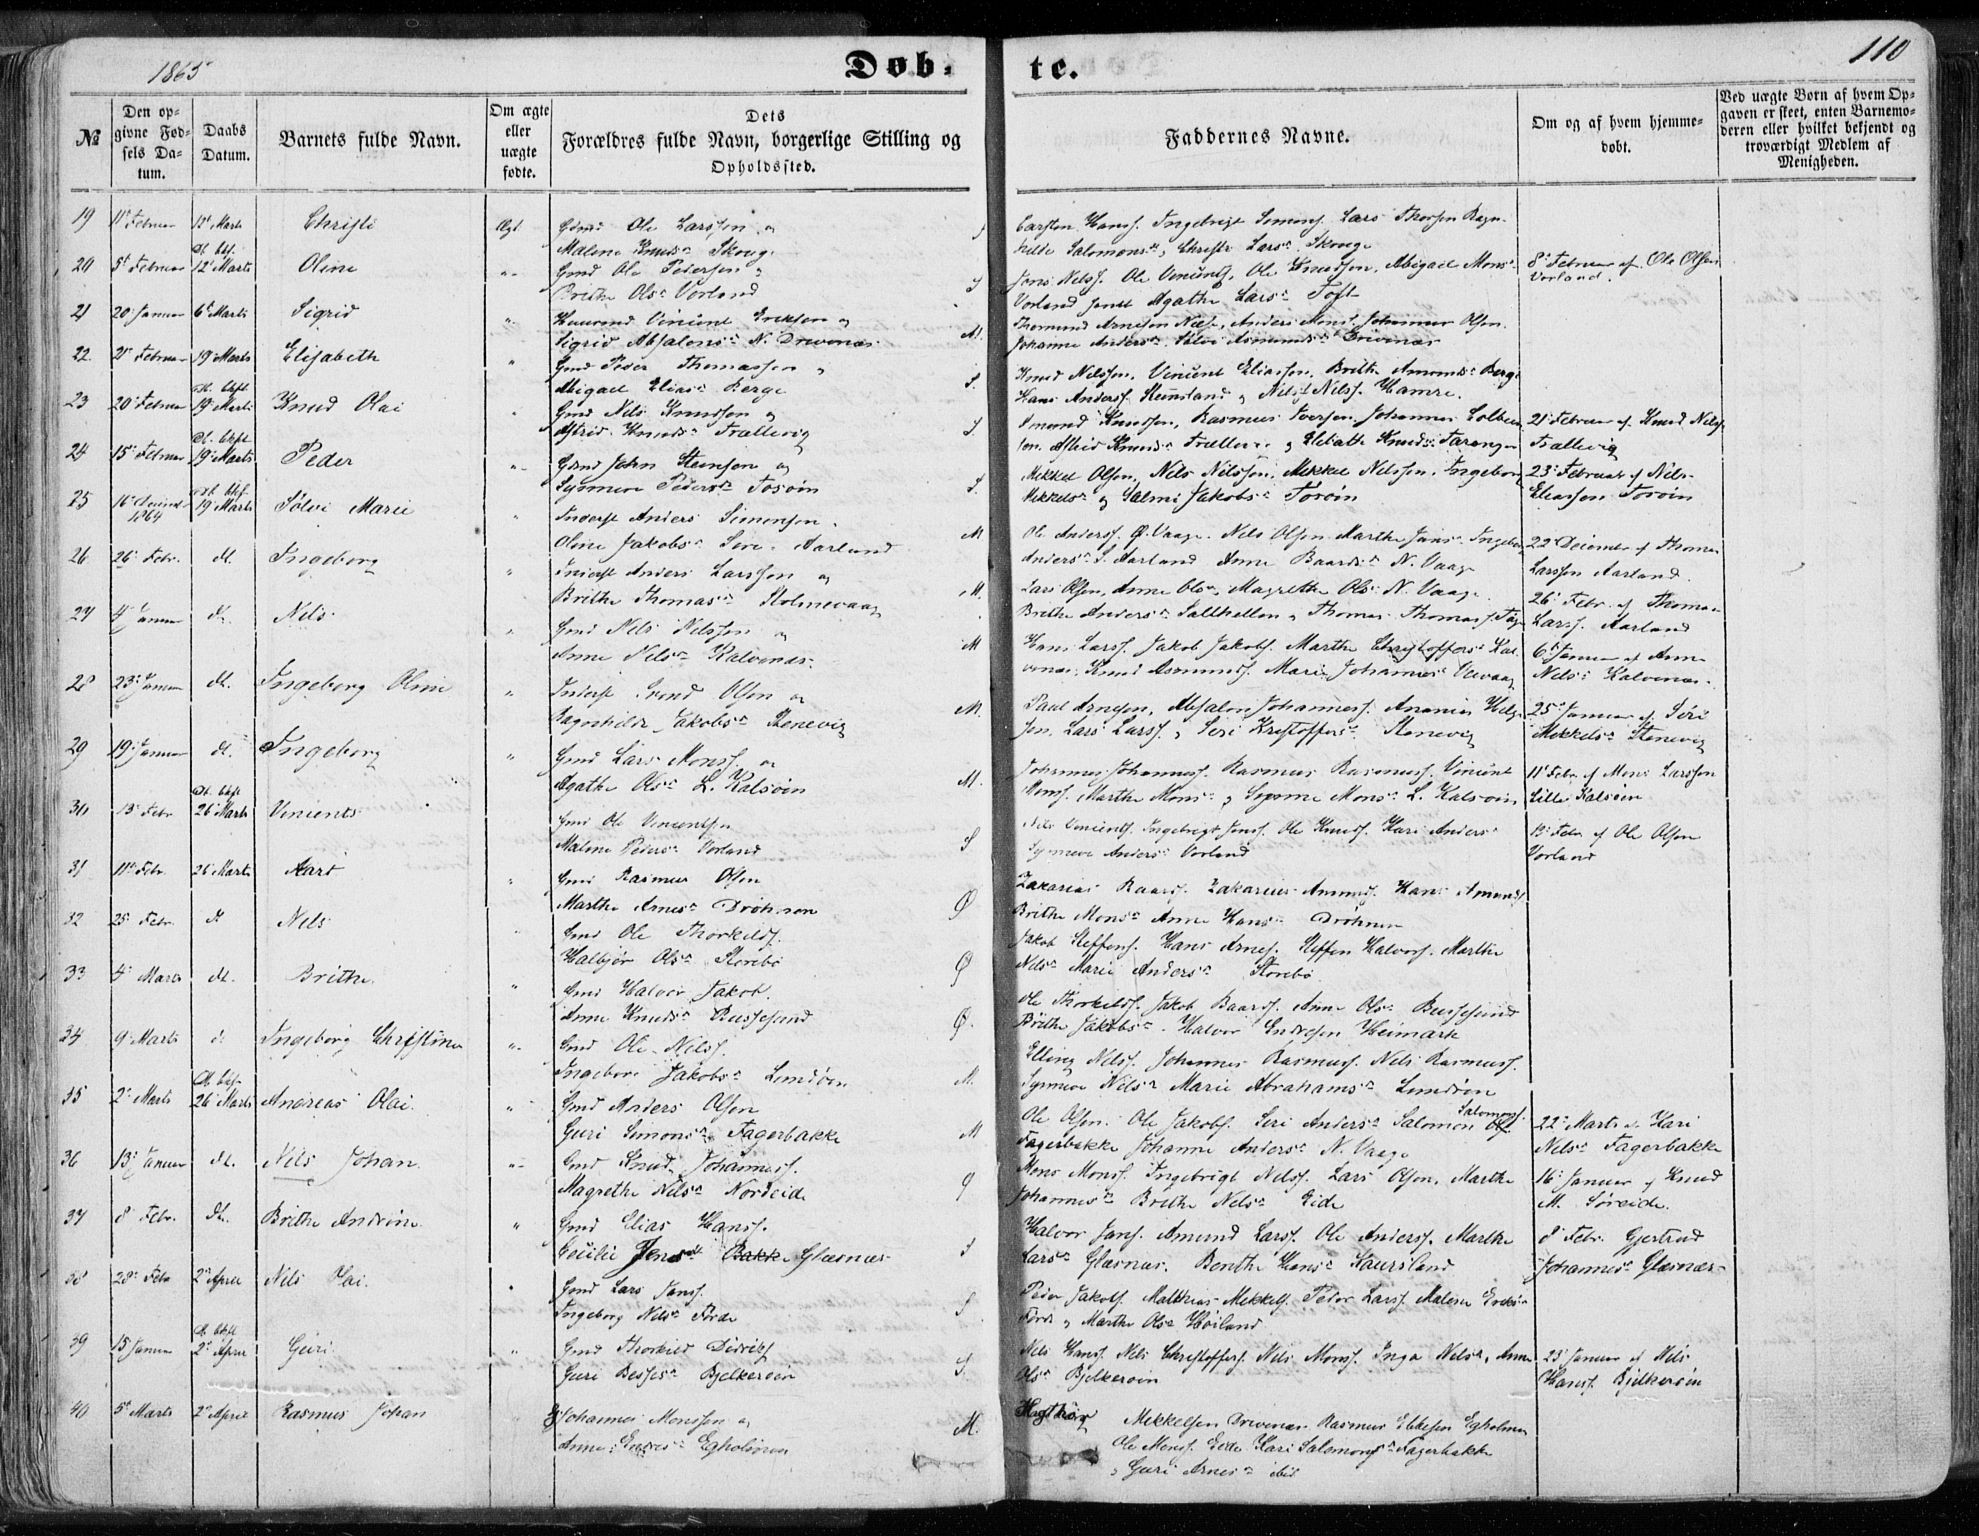 1865
Døb-
te.
110
№
Den opgivne Fødsels Datum.
Daabs Datum.
Barnets fulde Navn.
Om ægte eller uægte fødte.
Dets Forældres fulde Navn, borgerlige Stilling og Opholdssted.
Faddernes Navne.
Om og af hvem hjemmedøbt.
Ved uægte Børn af hvem Opgaven er skeet, enten Barnemoderen eller hvilket bekjendt og troværdigt Medlem af Menigheden.
19 11t Februar 12t Marts Christi Ægt. Gmd Ole Larsson og
Malene Knudsdr Skoug. S
Carsten Hanss. Ingebrigt Simons. Lars Thorsen Ragn-
hilde Salomonsdr, Christi Larsdr Skouge
20 5t Februar 12t Marts Oline Gmd Ole Pedersen
Brithe Olsdr Vorland S
Jens Nilss. Ole Vincents, Ole Knudssen, Abigael Monsdr
Vorland samt Agathe Larsdr Toft
8t Februar af Ole Olsen
Vorland.
21 20 Januar 6t Marts Sigrid Vincent Eriksen og
Sigrid Absalonsdr N. Drivenæs M.
Thomund Arnesen Anders Mons. Johannes Olsen
Johanne Andersdr Drivenæs
22 2t Februar 19 Marts Elisabeth Gmd Peder Thomassen
Abigael Eliasdr Berge S.
Knud Nilssen, Vincent Eliassen, Brithe Amundsdr Berge
Hans Anderss. Steinsland og Nils Nilss. Hamre.
23 20 Februar 19 Marts Knud Olai Gmd Nils Knudssen og
Astrid Knudsdr Trællevig S.
Knudssen, Rasmus Iversen, Johannes
Astrid Knudsdr og Elsbath Knudsdr
21 Februar af Knud Nilss.
Trællevig
24 15 Februar 19 Marts Peder Gmd John Steinsen og
Synneve Pedersdr Torsøin S.
Mikkel Olsen, Nils Nilssen, Mikkel Nilssen, Ingeborg
Mikkelsdr og Jakobsdr Torsøin
23 Februar af Nils
Eliassen Torsøin
25 16 1864 19 Marts Sølvi Marie Inderst Anders Simonsen
Oline Jakobsdr Aarland M
Ole Anderss. Ø. Vaage. Nils Olsen Marthe Jansdr Ingeborg
Andersdr S. Aarland Anne Baardsdr N. Vaage
22 December af Thomas
Larssen Aarland.
26 26 Febr. d. Ingeborg Inderst Anders Larssen og
Brithe Thomasdr Holmevaag M.
Lars Olsen, Anne Olsdr, Magrethe Olsdr N. Vaage
Brithe Andersdr Salthellen, Thomas Thomass.
26 Febr. af Thomas
Larss. Aarland
27 4 Januar d. Nils Gmd Nils Nilssen og
Anne Nilsdr Kalvenæs M
Hans Larss. Jakob Jakobs. Marthe Christoffersdr Kal-
venæs, Knud Asmunds. Marie Johannesdr
6 Januar af Anne
Nilsdr Kalvenæs.
28 23 Januar d. Ingeborg Oline Inderst Olsen og
Ragnhilde Jakobsdr Stenevig M.
Paul Arnesen, Absalon Johanness. Ananias
Lars Larss. Seri Kristoffersdr Stenevig
25 Januar af Seri
Mikkelsdr Stenevig
29 19 Januar d. Ingeborg Gmd Lars Monss. og
Agathe Olsdr L. Kalsøin M.
Johannes Johanness. Rasmus Rasmuss. Vincent
Monss. Marthe Monsdr og Monsdr L. Kalsøin
11 Febr. af Mons Larssen
Lille Kalsøin
30 13 Febr 26 Marts Vincents Gmd Ole Vincentsen
Malene Pedersdr Vorland S
Nils Vincents. Ingebrigt Jens. Ole Knuds. Kari Andersdr
Synneve Andersdr Vorland
13 Febr. af Ole Olsen
Vorland
31 11 Febr. 26 Marts Gmd Rasmus Olsen
Marthe Arnesdr Drøhnen Ø
Zakarias Baards. Zakarias Amunds. Hans Amunds.
Brithe Monsdr Anne Hansdr Drøhnen
32 25 Febr. d. Nils Gmd Ole Thorkilds.
Halbjør Olsdr Storebø Ø
Jakob Steffens. Hans Arnes. Steffen Halvors. Marthe
Nilsdr Marie Andersdr Storebø
33 4 Marts d. Brithe Gmd Halvor Jakob.
Anne Knudsdr Bussesund Ø.
Ole Thorkilds. Jakob Baards. Anne Olsdr Bussesund
Brithe Jakobsdr. Halvor Endresen Heimark
34 9 Marts d. Ingeborg Christine Gmd Ole Nilss.
Ingeborg Jakobsdr Lundøen M.
Elling Nilss. Johannes Rasmuss. Nils Rasmuss.
Synneve Nilsdr Marie Abrahamsdr Lundøen
35 2 Marts 26 Marts Andreas Olai. Gmd Anders Olsen
Guri Simonsdr Fagerbakke M
Ole Olsen. Ole Jakobs. Seri Andersdr Salomon Salomons.
Fagerbakke Johanne Andersdr N. Vaage
22 Marts Kari
Nilsdr Fagerbakke
36 13 Januar d. Nils Johan. Gmd Knud Johanness.
Magrethe Nilsdr Nordeide Ø
Mons Monss. Ingebrigt Nilss. Lars Olsen, Marthe
Johannesdr Brithe Nilsdr Eide
16 Januar af Knud
M. Søreide.
37 8 Febr. d. Brithe Andrine. Gmd Elias Hanss.
Cecilie Jensdt Bakke Glæsnæs S
Halvor Jans. Amund Larss. Ole Anderss. Marthe
Larsdr Glæsnæs. Benthe Hansdr Kaursland
8 Febr. Gjertrud
Johannesdr Glæsnæs
38 28 Febr 2 April Nils Olai. Gmd Lars Janss.
Ingeborg Nilsdr Førde S
Peder Jakobs. Mathias Mikkels. Peder Larss. Malene Eriksdr
Førde og Marthe Olsdr Høiland
39 15 Januar 2 April Guri Gmd Thorkild Didriks
Guri Bessesdr Bjelkerøin S.
Nils Hanss. Nils Christoffers. Nils Monss. Inga Nilsdr, Anne
Olsdr Bjelkerøin
23 Januar af Nils
Hanss. Bjelkerøin
40 5t Marts 2 April Rasmus Johan Johannes Monssen og
Anne Egholmen M.
Mikkelsen Drivenæs Rasmus Egholmen
Ole Monss. Eide Kari Salomonsdr Fagerbakke
Guri Arnesdr ibid